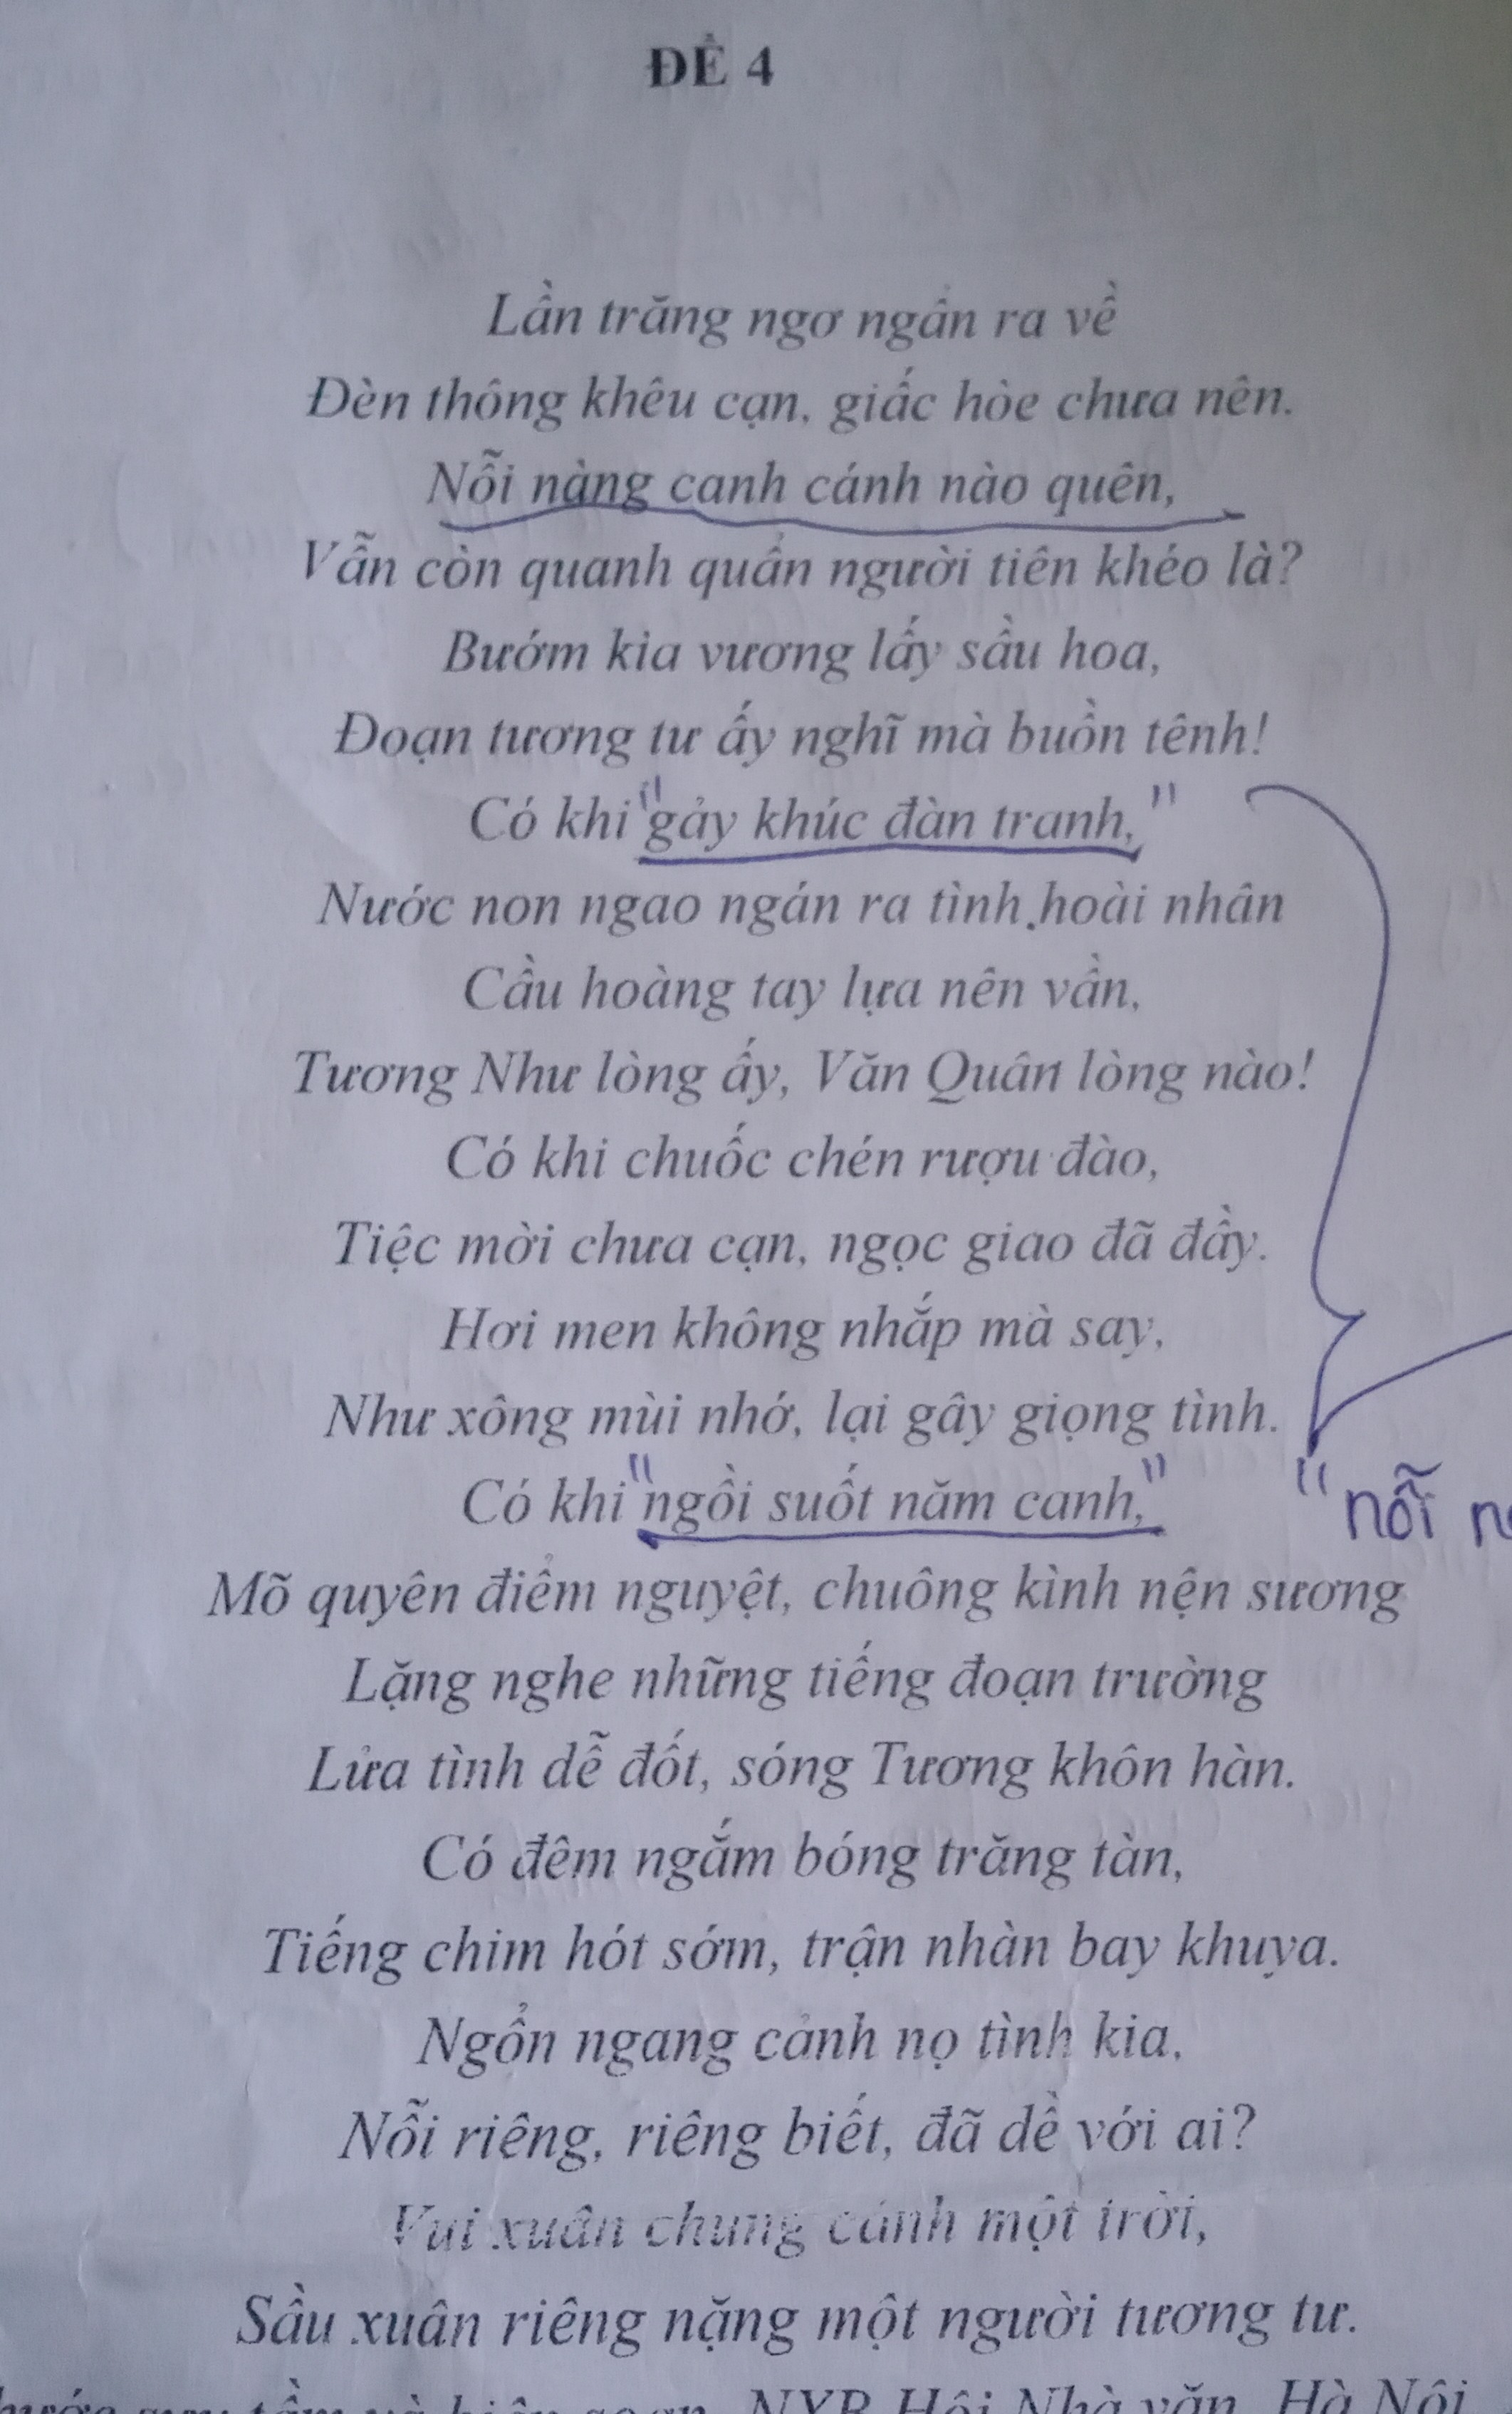 ĐỀ 4
Lần trăng ngơ ngẩn ra về
Đèn thông khêu cạn, giấc hòe chưa nên.
Nỗi nàng canh cánh nào quên,
Vẫn còn quanh quẩn người tiên khéo là?
Bướm kia vương lấy sầu hoa,
Đoạn tương tư ấy nghĩ mà buồn tênh!
Có khi "gảy khúc đàn tranh,"
Nước non ngao ngán ra tình hoài nhân
Cầu hoàng tay lựa nên vần,
Tương Như lòng ấy, Văn Quân lòng nào!
Có khi chuốc chén rượu đào,
Tiệc mời chưa cạn, ngọc giao đã đầy.
Hơi men không nhắp mà say,
Như xông mùi nhớ, lại gây giọng tình.
Có khi "ngồi suốt năm canh,"
"nỗi
Mõ quyên điểm nguyệt, chuông kình nện sương
Lặng nghe những tiếng đoạn trường
Lửa tình dễ đốt, sóng Tương khôn hàn.
Có đêm ngắm bóng trăng tàn,
Tiếng chim hót sớm, trận nhàn bay khuya.
Ngổn ngang cảnh nọ tình kia,
Nỗi riêng, riêng biết, đã dề với ai?
Vui xuân chung cảnh một trời,
Sầu xuân riêng nặng một người tương tư.
NXB Hội Nhà văn, Hà Nội